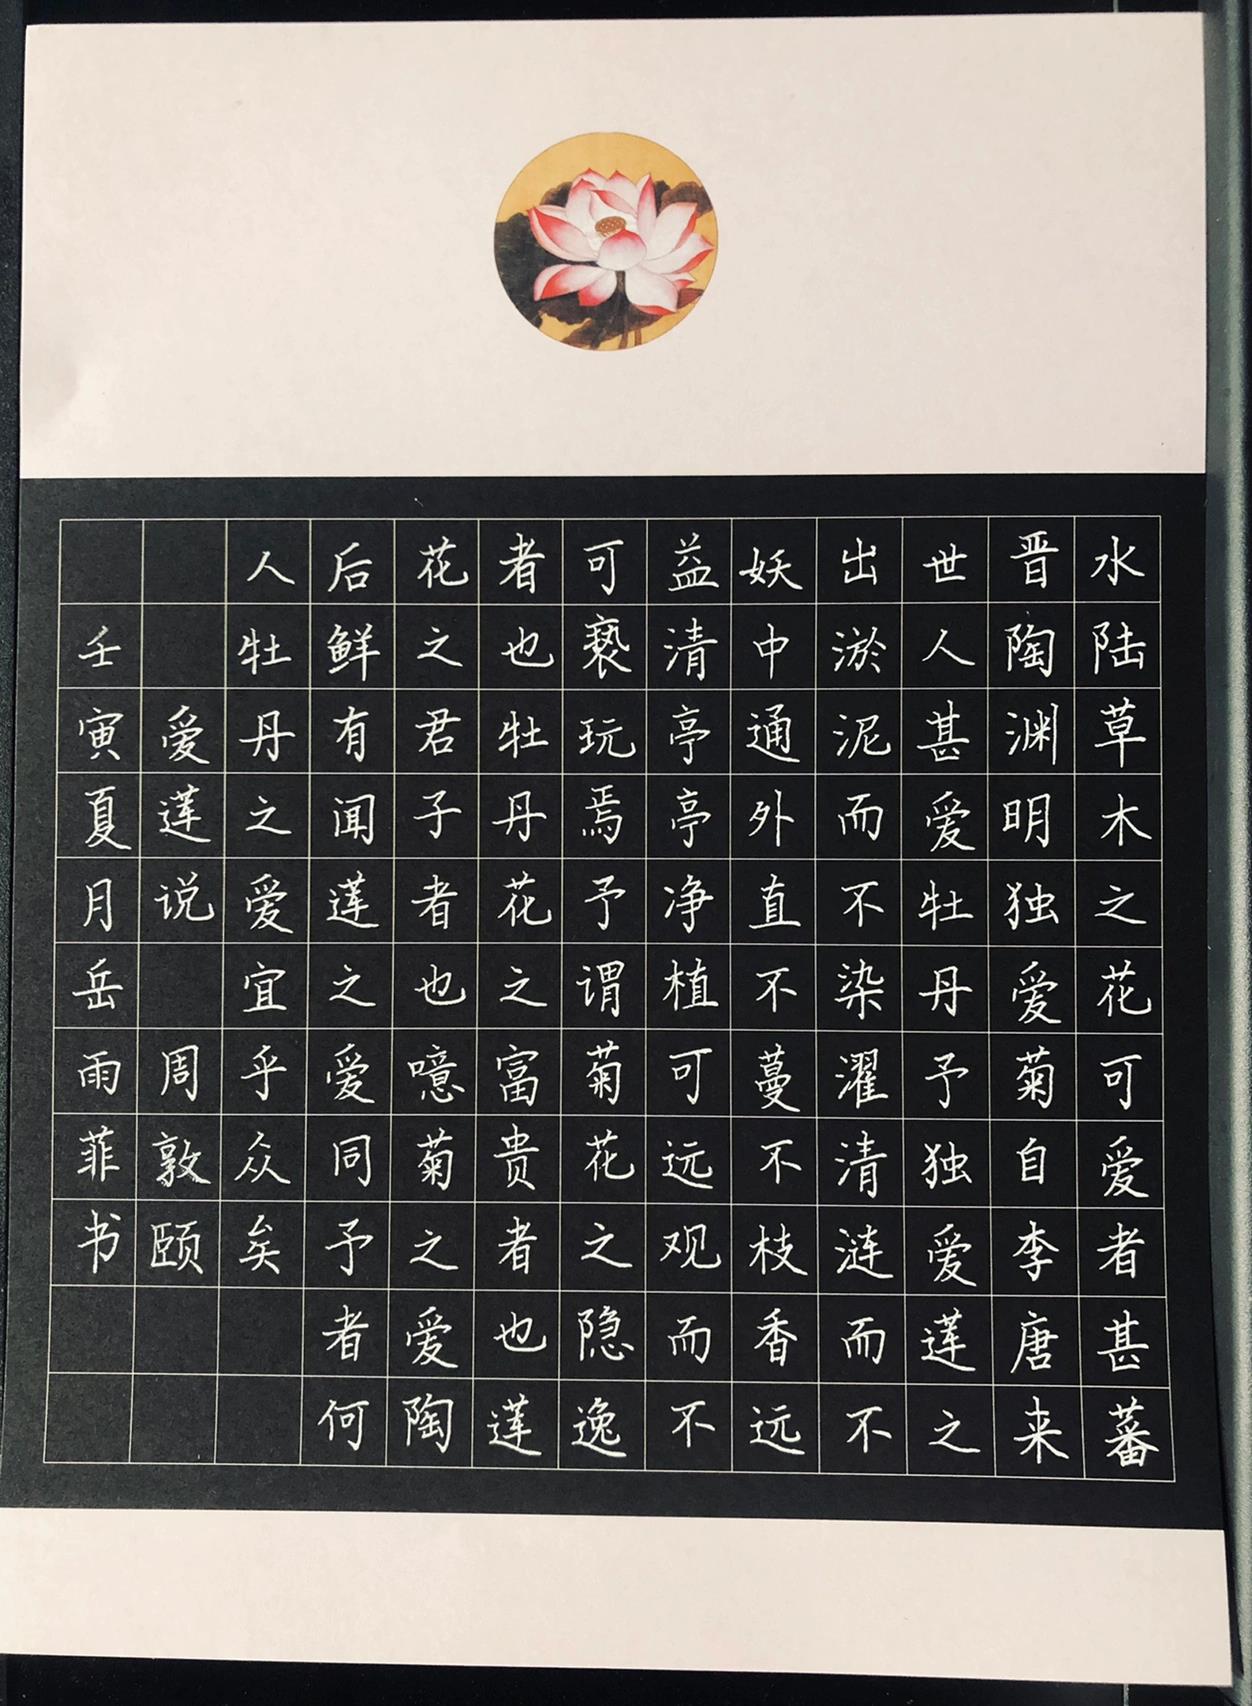 水陆草木之花可爱者甚蕃
晋陶渊明独爱菊自李唐来
世人甚爱牡丹予独爱莲之
出淤泥而不染濯清涟而不
妖中通外直不蔓不枝香远
益清亭亭净植可远观而不
可亵玩焉予谓菊花之隐逸
者也牡丹花之富贵者也莲
花之君子者也噫菊之爱陶
后鲜有闻莲之爱同予者何
人牡丹之爱宜乎众矣
爱莲说 周敦颐
壬寅夏月岳雨菲书